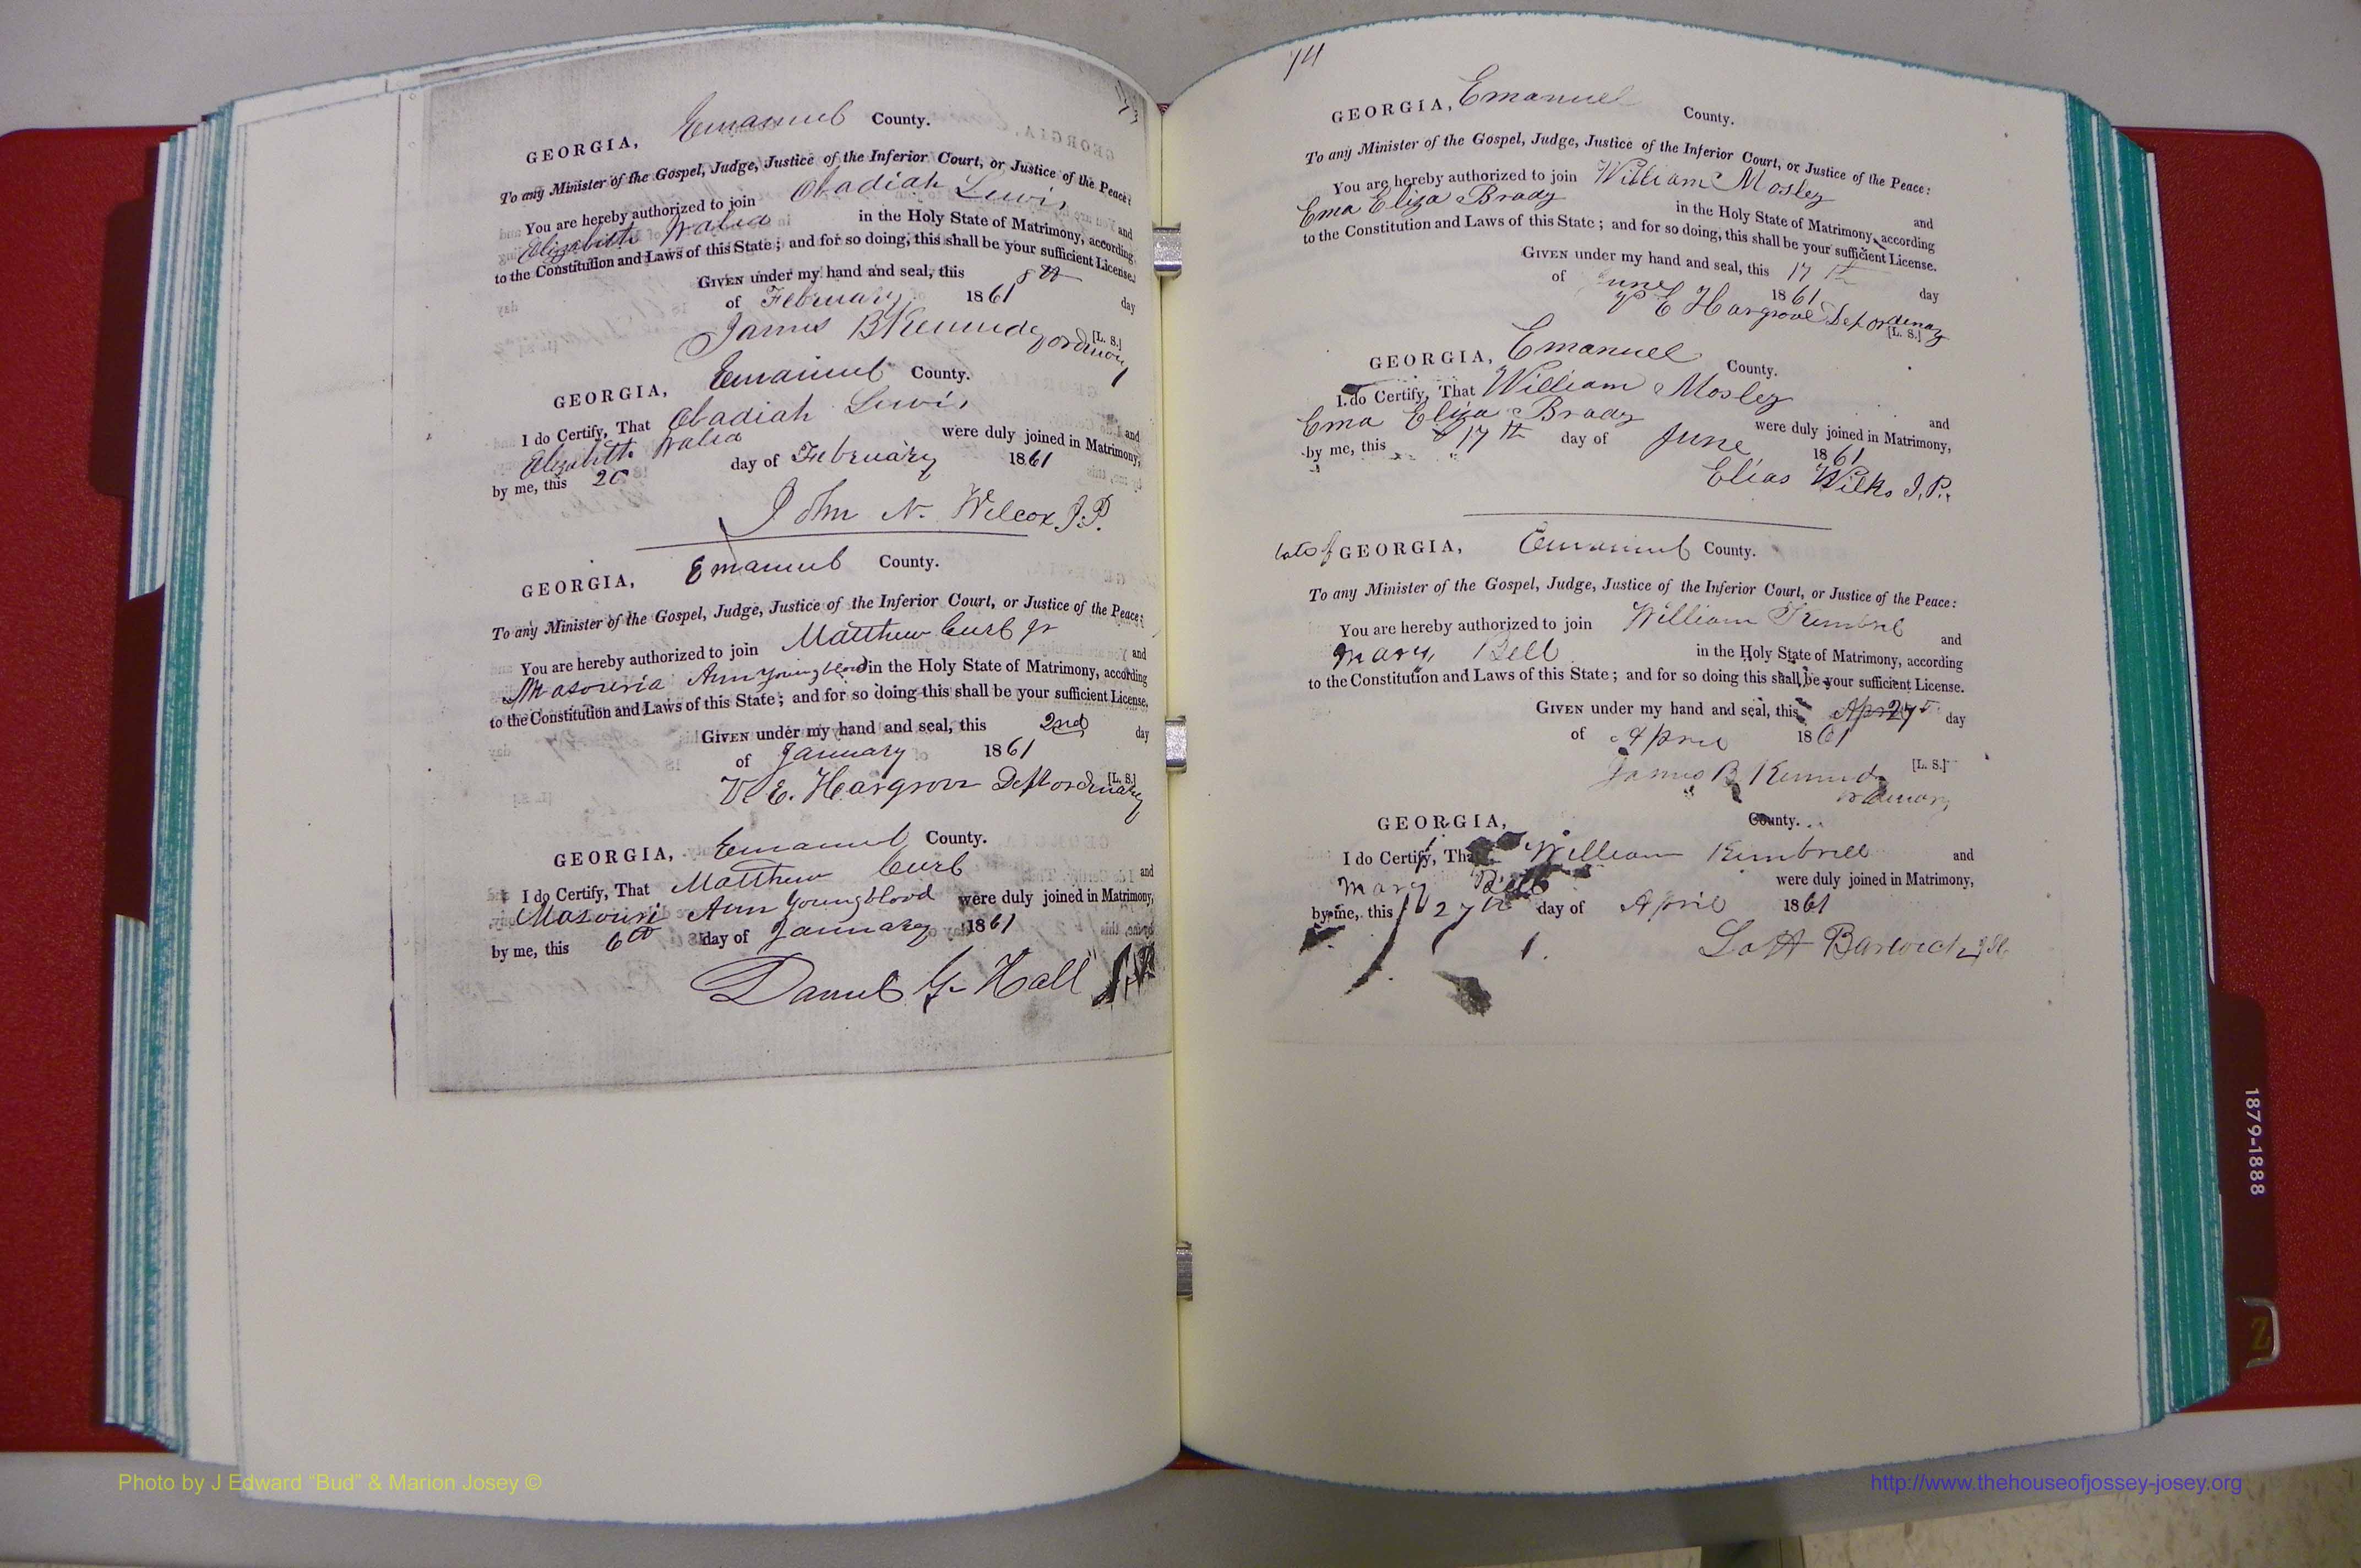 73
GEORGIA, Emanuel County.
To any Minister of the Gospel, Judge, Justice of the Inferior Court, or Justice of the Peace:
You are hereby authorized to join Obadiah Lewis and
Elizabeth in the Holy State of Matrimony, according
to the Constitution and Laws of this State; and for so doing, this shall be your sufficient License.
GIVEN under my hand and seal, this 8th day
of February 1861
James B Kennedy ordinary [L. S.]
GEORGIA, Emanuel County.
I do Certify, That Obadiah Lewis and
Elizabeth were duly joined in Matrimony,
by me, this 20 day of February 1861
John N. Wilcox J.P.
GEORGIA, Emanuel County.
To any Minister of the Gospel, Judge, Justice of the Inferior Court, or Justice of the Peace:
You are hereby authorized to join Matthew Curl Jr and
Masouria Ann Youngblood in the Holy State of Matrimony, according
to the Constitution and Laws of this State; and for so doing this shall be your sufficient License.
GIVEN under my hand and seal, this 2nd day
of January 1861
E. Hargrove Dept ordinary [L. S.]
GEORGIA, Emanuel County.
I do Certify, That Matthew Curl and
Masouri Ann Youngblood were duly joined in Matrimony,
by me, this 6th day of January 1861
Daniel G. Hall JP
74
GEORGIA, Emanuel County.
To any Minister of the Gospel, Judge, Justice of the Inferior Court, or Justice of the Peace:
You are hereby authorized to join William Mosley and
Ema Eliza Brady in the Holy State of Matrimony, according
to the Constitution and Laws of this State; and for so doing, this shall be your sufficient License.
GIVEN under my hand and seal, this 17th day
of June 1861
E Hargrove Dep ordinary [L. S.]
GEORGIA, Emanuel County.
I do Certify, That William Mosley and
Ema Eliza Brady were duly joined in Matrimony,
by me, this 17th day of June 1861
Elias Wilks J.P.
GEORGIA, Emanuel County.
To any Minister of the Gospel, Judge, Justice of the Inferior Court, or Justice of the Peace:
You are hereby authorized to join William and
Mary Bell in the Holy State of Matrimony, according
to the Constitution and Laws of this State; and for so doing this shall be your sufficient License.
GIVEN under my hand and seal, this 27 day
of April 1861
James B Kennedy [L. S.]
ordinary
GEORGIA, County.
I do Certify, That William Kimbrell and
Mary Bell were duly joined in Matrimony,
by me, this 27th day of April 1861
Lott Barwick
1879-1888
Z
Photo by J Edward “Bud” & Marion Josey ©
http://www.thehouseofjossey-josey.org